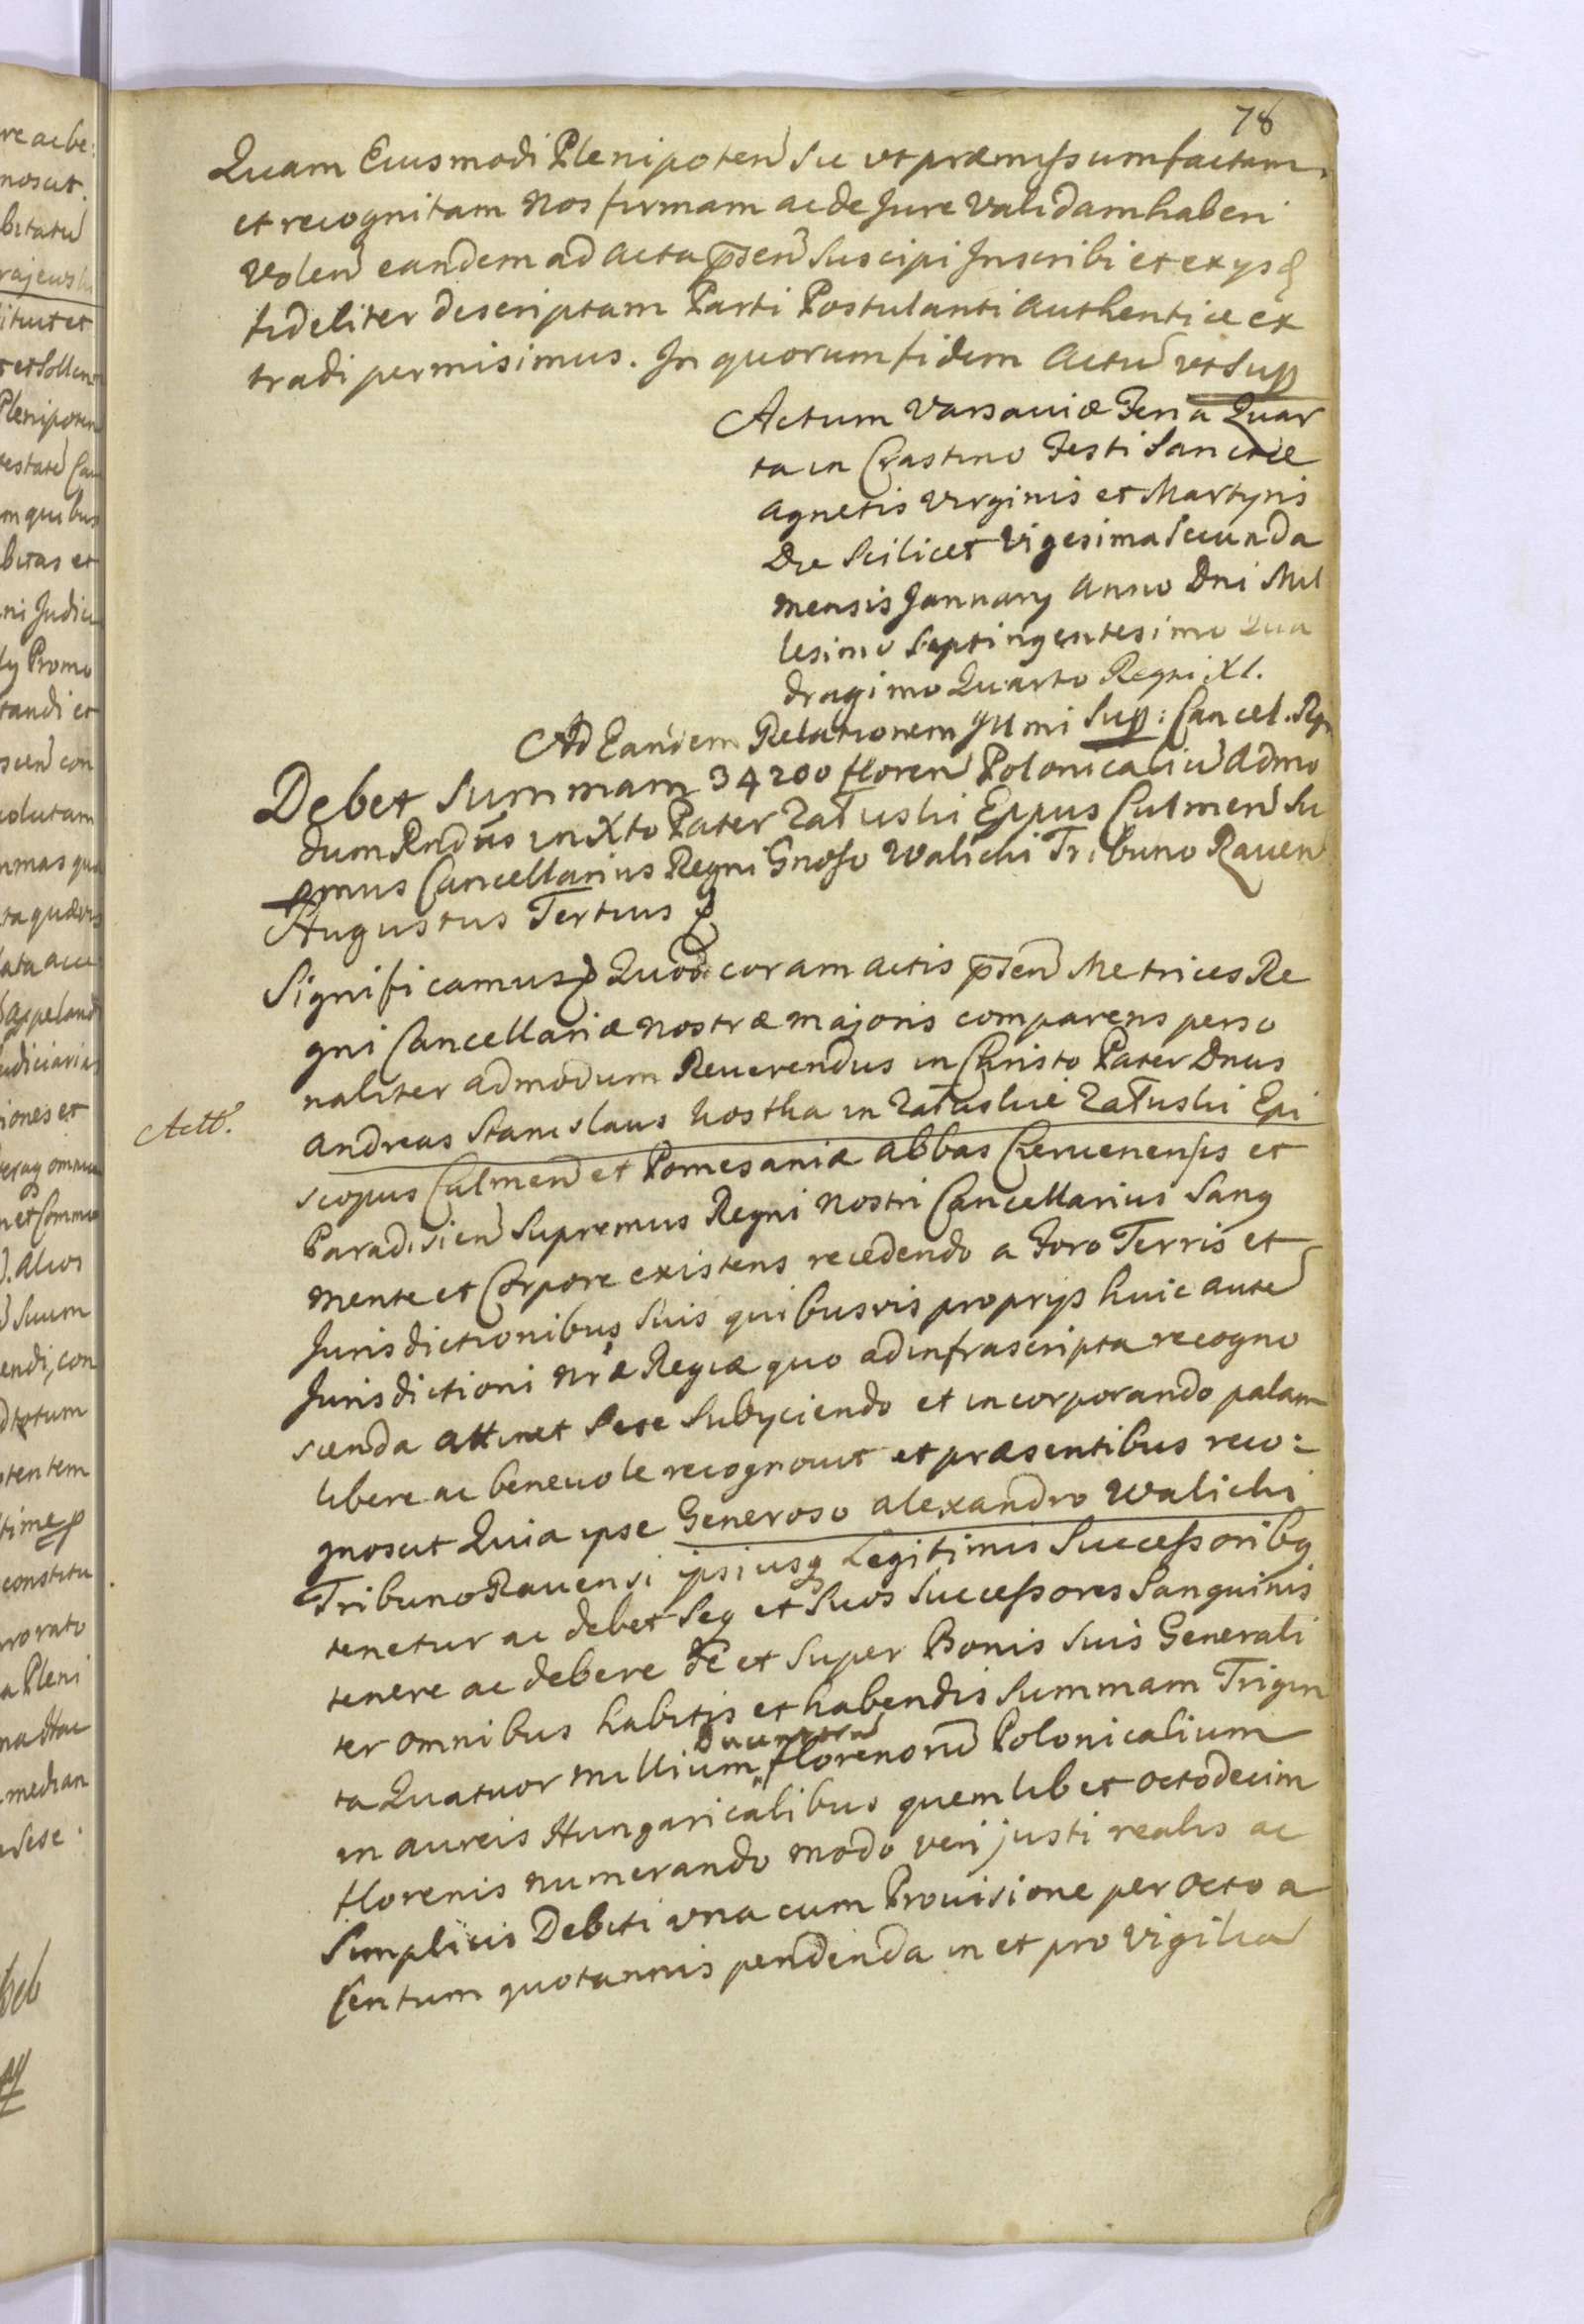 78
Quam Eiusmodi Plenipoten Sic vt præmissum factam
et recognitam Nos firmam ac de Jure validam haberi
volen eandem ad Acta pñten Suscipi Inscribi et ex ijs
fideliter descriptam Parti Postulanti Authentice ex
tradi permisimus. In quorum fidem Actu vt Sup
Actum Varsaviæ Feria Quar
ta in Crastino Festi Sanctæ
Agnetis Virginis et Martyris
Die Scilicet Vigesima Secunda
mensis January Anno Dni Mil
lesimo Septingentesimo Qua
dragimo Quarto Regni XI.
Ad Eandem Relationem Illmi Sup: Cancel. Rgn
Debet Summam 34200 floren Polonicaliu Admo
dum Rndus in Xto Pater Załuski Eppus Culmen Su
pmus Cancellarius Regni Gnoso Walicki Tribuno Raven
Augustus Tertius
Significamus Quod coram Actis pñten Metrices Re
gni Cancellariæ nostræ majoris comparens perso
naliter admodum Reuerendus in Christo Pater Dnus
Andreas Stanislaus Kostka in Załuskie Załuski Epi
Actt.
scopus Culmen et Pomesaniæ Abbas Cervenensis et
Paradisien Supremus Regni Nostri Cancellarius Sang
mente et Corpore existens recedendo a Foro Terris et
Jurisdictionibus Suis quibusvis proprijs huic aute
Jurisdictioni nræ Regiæ quo ad infrascripta recogno
scenda attinet Sese Subijciendo et incorporando palam
libere ac beneuole recognouit et præsentibus reco:
gnoscit Quia ipse Generoso Alexandro Walicki
Tribuno Ravensi ipsiusq Legitimis Successoribq
tenetur ac debet Seq et Suos Successores Sanguinis
tenere ac debere de et Super Bonis Suis Generali
ter omnibus habitis et habendis Summam Trigin
Ducentoru
ta Quatuor millium florenoru Polonicalium
in aureis Hungaricalibus quemlibet octodecim
florenis numerando modo veri justi realis ac
Simplicis Debiti vna cum Prouisione per octo a
Centum quotannis pendenda in et pro Vigilia